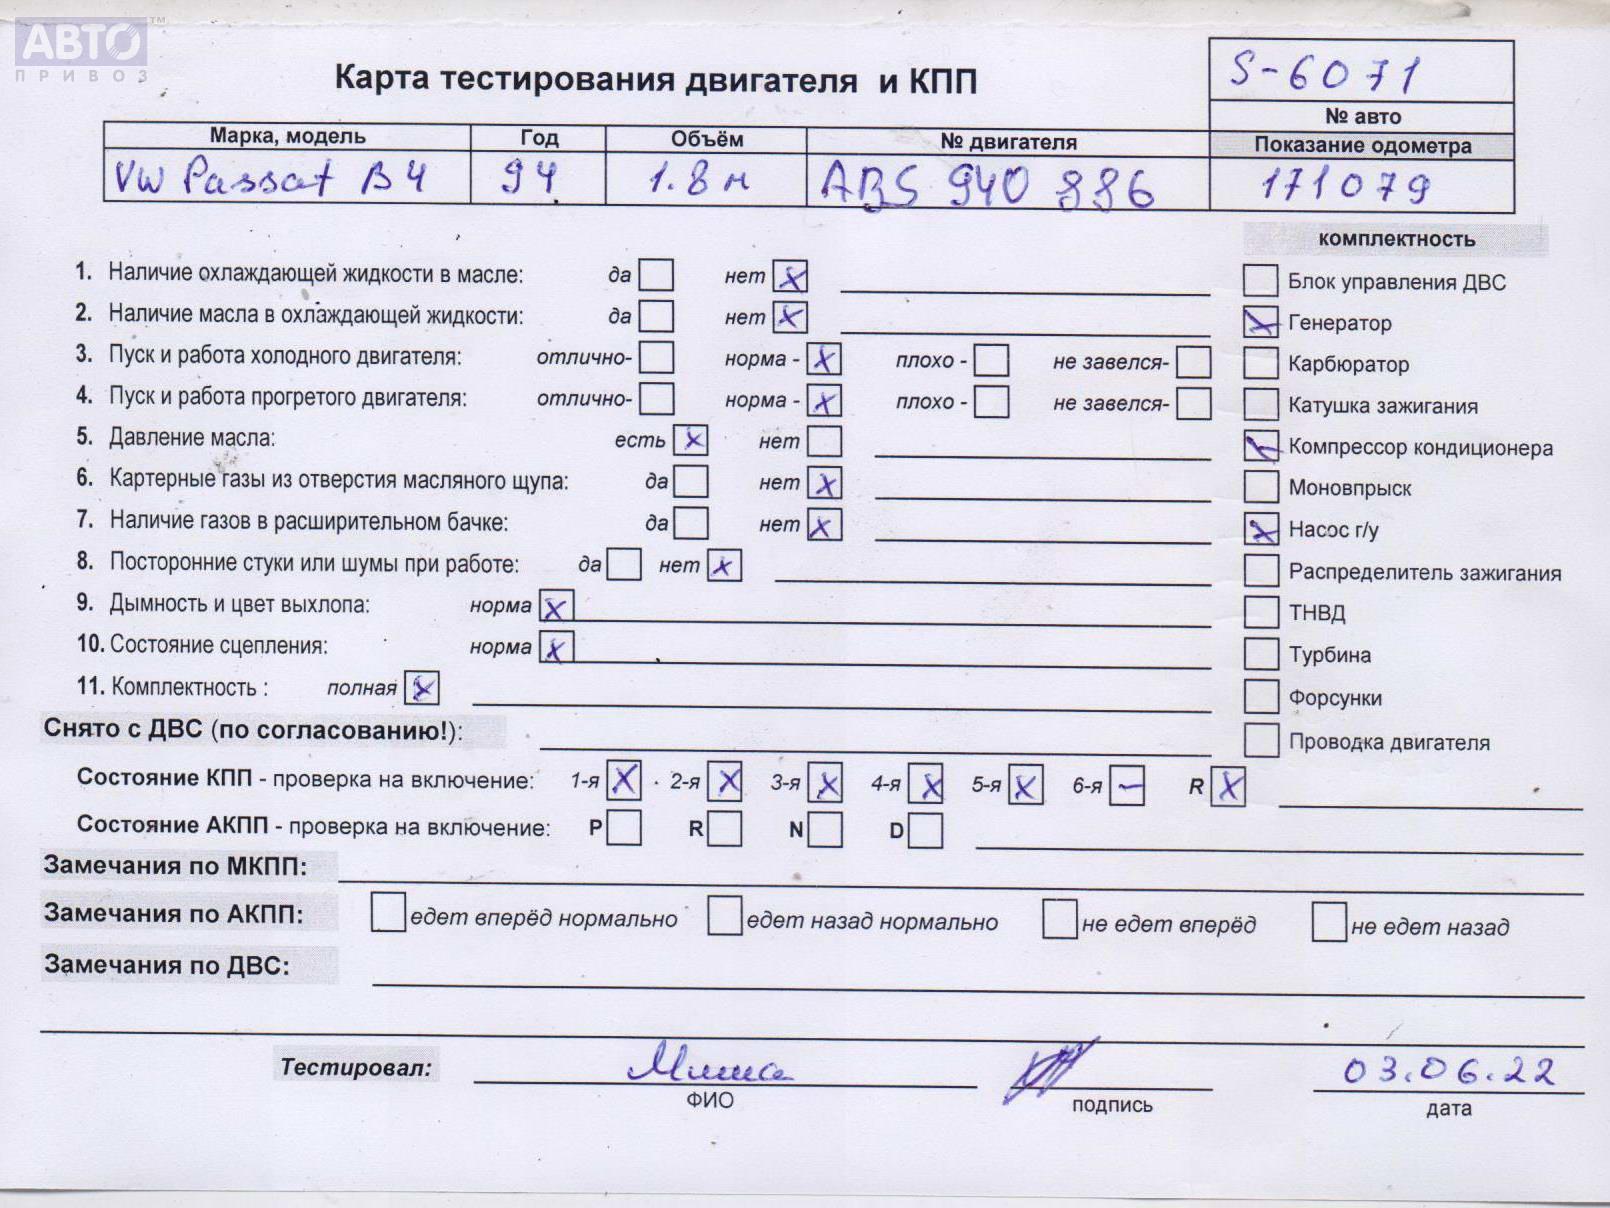 АВТО™
ПРИВОЗ
Карта тестирования двигателя и КПП
S-6071
№ авто
Марка, модель Год Объём № двигателя Показание одометра
VW Passat B4 94 1.8 м ABS 940 886 171079
комплектность
1. Наличие охлаждающей жидкости в масле: да нет x
Блок управления ДВС
2. Наличие масла в охлаждающей жидкости: да нет x
x Генератор
3. Пуск и работа холодного двигателя: отлично- норма - x плохо - не завелся-
Карбюратор
4. Пуск и работа прогретого двигателя: отлично- норма - x плохо - не завелся-
Катушка зажигания
5. Давление масла: есть x нет
x Компрессор кондиционера
6. Картерные газы из отверстия масляного щупа: да нет x
Моновпрыск
7. Наличие газов в расширительном бачке: да нет x
x Насос г/у
8. Посторонние стуки или шумы при работе: да нет x
Распределитель зажигания
9. Дымность и цвет выхлопа: норма x
ТНВД
10. Состояние сцепления: норма x
Турбина
11. Комплектность : полная x
Форсунки
Снято с ДВС (по согласованию!):
Проводка двигателя
Состояние КПП - проверка на включение: 1-я x 2-я x 3-я x 4-я x 5-я x 6-я – R x
Состояние АКПП - проверка на включение: P R N D
Замечания по МКПП:
Замечания по АКПП: едет вперёд нормально едет назад нормально не едет вперёд не едет назад
Замечания по ДВС:
Тестировал: Миша 03.06.22
ФИО подпись дата